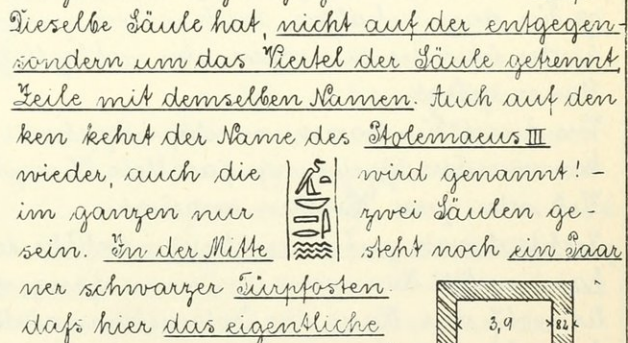 Dieselbe Säule hat, nicht auf der entgegen-
sondern um das Viertel der Säule getrennt,
Zeile mit demselben Namen. Auch auf den
ken kehrt der Name des Ptolemaeus III
wieder, auch die wird genannt! -
im ganzen nur zwei Säulen ge-
sein. In der Mitte steht noch ein Paar
ner schwarzer Türpfosten
dafs hier das eigentliche
3,9 82